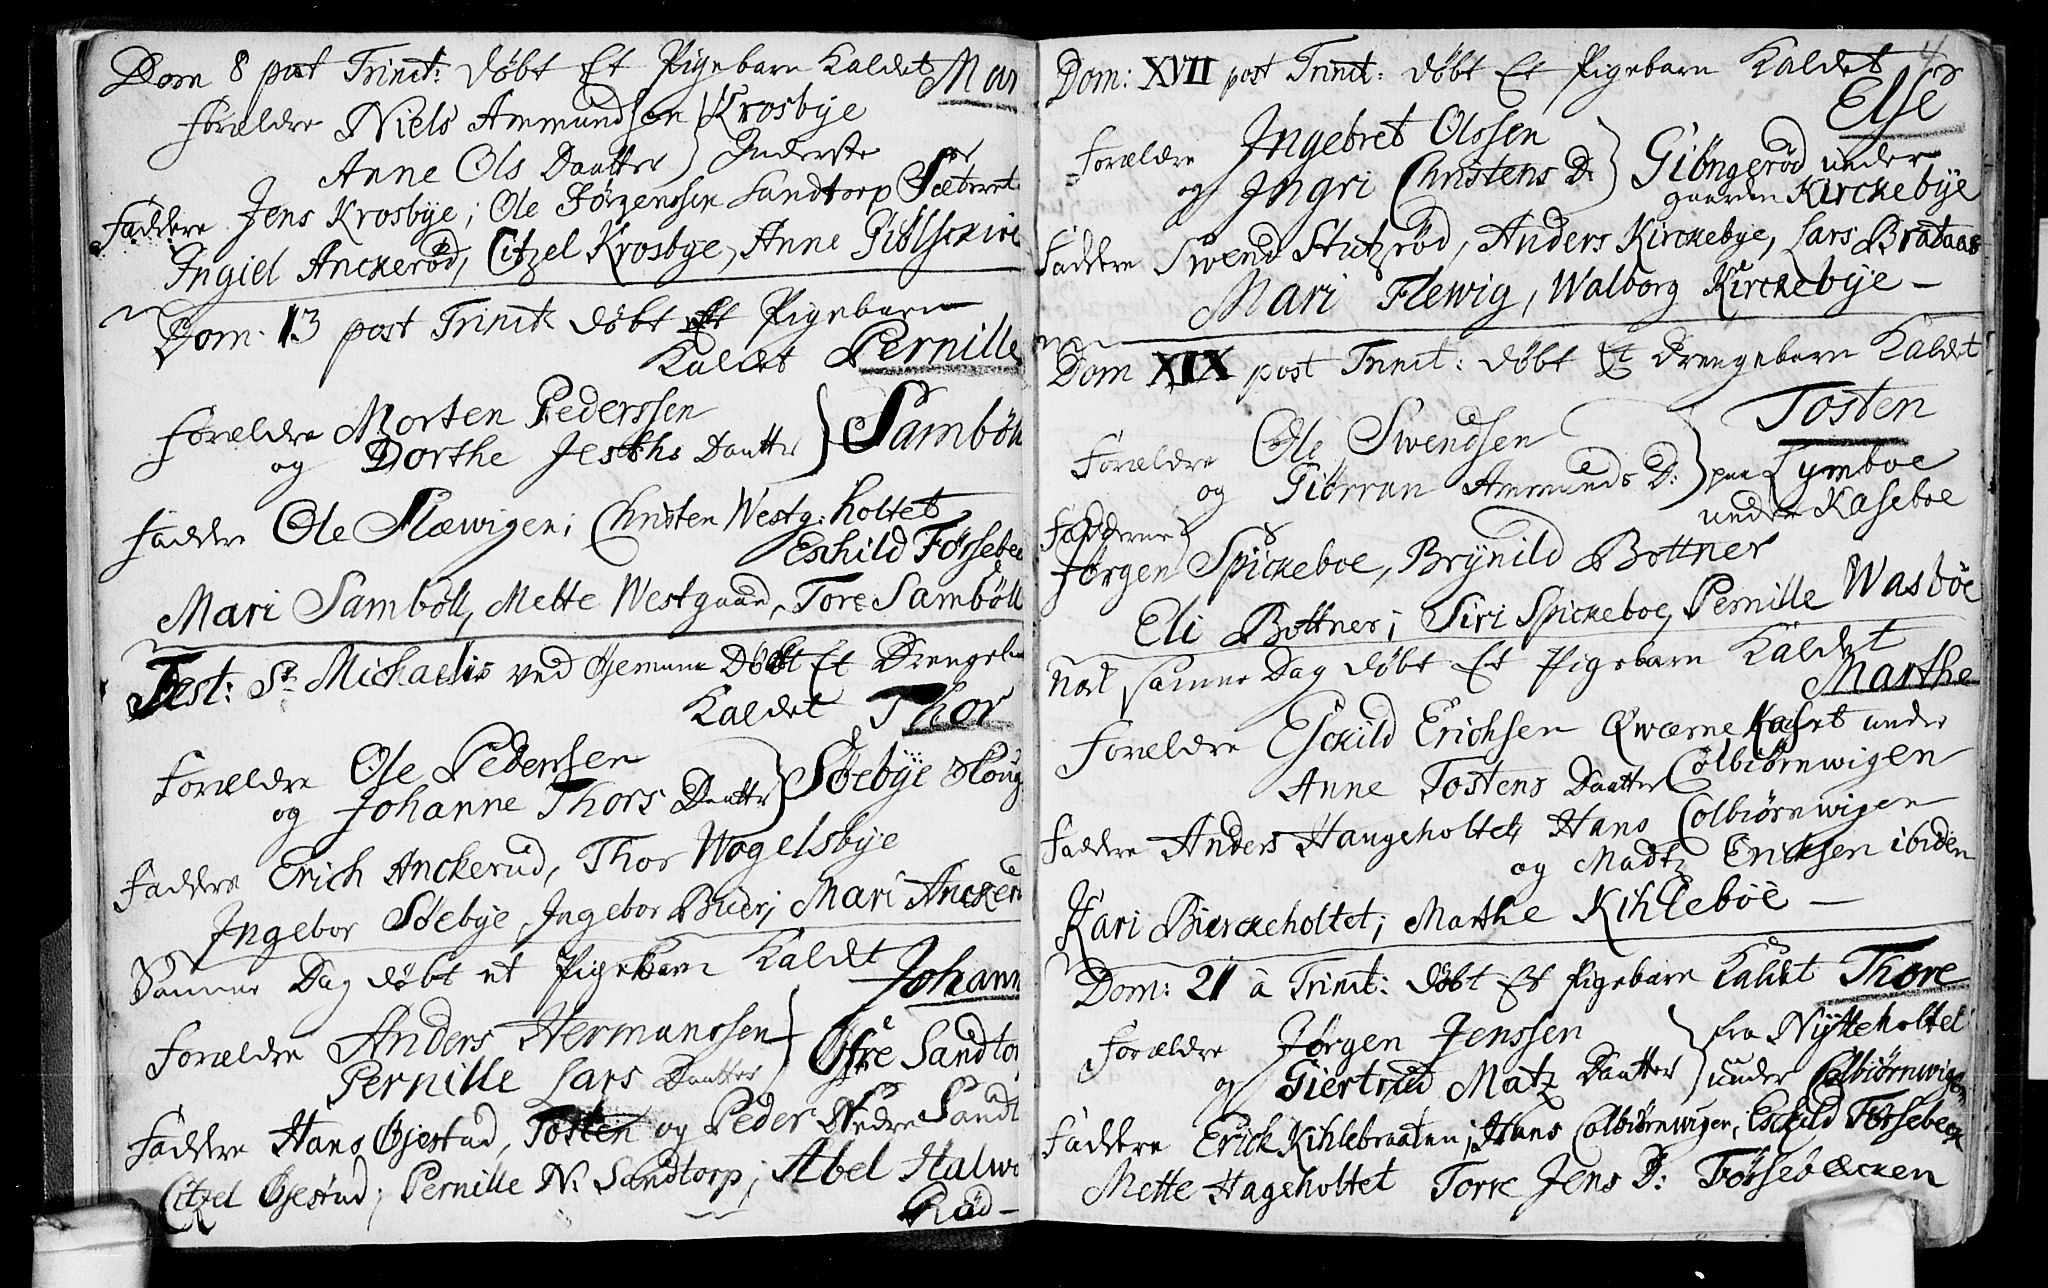 Dom 8 post Trinit: døbt Et Pigebarn Kaldet Mar
Forældre Niels Ammundsen Krosbye
Anne Ols Daatter Inderste
Faddere Jens Krosbye; Ole Jørgenssen Sandtorp Sæteret
Ingiel Anckerød, Citzel Krosbye, Anne
Dom. 13 post Trinit: døbt Et Pigebarn
Kaldet Pernille
Forældre Morten Pederssen
og Dorthe Daatter Sambøll
Faddere Ole Slæwigen; Christen Westg: holtet
Eskild Førsebec
Mari Sambøll, Mette Westgaard, Tore Sambøll
Fest: St Michaelis ved Døbt Et Drengeba
Kaldet Thor
Forældre Ole Pederssen
og Johanne Thors Daatter Søebye Houg
Faddere Erich Anckerud, Thor Wogelsbye
Ingebor Søebye, Ingebor Buer; Mari Ancker
Samme Dag døbt et Pigebarn Kaldt Johann
Forældre Anders Hermanssen
Pernille Lars Daatter Øfre Sandtor
Faddere Hans Gjestad, Tosten og Peder Nedre Sandt
Citzel Gjestad; Pernille N. Sandtorp; Abel Halwo
Rød
4
Dom: XVII post Trinit: døbt Et Pigebarn Kaldet
Else
Forældre Ingebret Olssen
og Ingri Christens D: Giöngerød under
gaarden Kirckebye
Faddere Swend Stutzrød, Anders Kirckebye, Lars Brataas
Mari Flewig, Walborg Kirckebye
Dom XIX post Trinit: døbt Et Drengebarn Kaldet
Tosten
Forældre Ole Swendsen
og Giörran Ammunds D: paa Lymboe
under Kaseboe
Fadderne
Jørgen Spickeboe, Brynild Bottner
Eli Bottner; Siri Spickeboe, Pernille Wasbøe
Nok samme Dag døbt Et Pigebarn Kaldet
Marthe
Forældre Esckild Erichsen Qwærne Kaset under
Anne Tostens Daatter Colbiørnwigen
Faddere Anders Haugeholtet, Hans Colbiørnwigen
og Madtz Erichsen ibidem
Kari Bierckeholtet; Marthe Kihlebøe
Dom: 21 à Trinit: døbt Et Pigebarn Kaldet Thore
Forældre Jørgen Jenssen fra Nytteholtet
og Giertrud Matz Daatter under Colbiørnwigen
Faddere Erick Kihlebraaten; Hans Colbiørnwigen; Eskild Førsebeck
Mette Hageholtet Torre Jens D: Førsebæcken